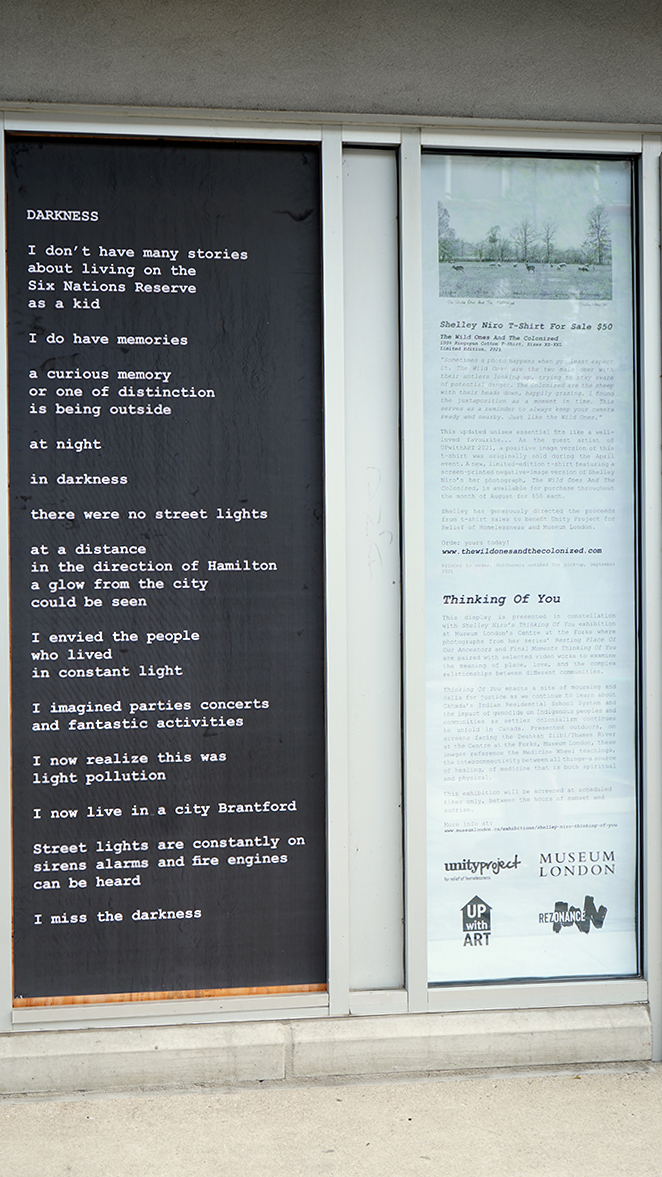 DARKNESS
I don't have many stories
about living on the
Six Nations Reserve
as a kid
I do have memories
a curious memory
or one of distinction
is being outside
at night
in darkness
there were no street lights
at a distance
in the direction of Hamilton
a glow from the city
could be seen
I envied the people
who lived
in constant light
I imagined parties concerts
and fantastic activities
I now realize this was
light pollution
I now live in a city Brantford
Street lights are constantly on
sirens alarms and fire engines
can be heard
I miss the darkness
Shelley Niro T-Shirt For Sale $50
The Wild Ones And The Colonized
100% Ringspun Cotton T-Shirt, Sizes XS-XXL
Limited Edition, 2021
"Sometimes a photo happens when you least expect
it. The Wild Ones are the two male deer with
their antlers looking up, trying to stay aware
of potential danger. The Colonized are the sheep
with their heads down, happily grazing. I found
the juxtaposition as a moment in time. This
serves as a reminder to always keep your camera
ready and nearby. Just like the Wild Ones."
This updated unisex essential fits like a well-
loved favourite... As the guest artist of
UPwithART 2021, a positive image version of this
t-shirt was originally sold during the April
event. A new, limited-edition t-shirt featuring a
screen-printed negative-image version of Shelley
Niro's her photograph, The Wild Ones And The
Colonized, is available for purchase throughout
the month of August for $50 each.
Shelley has generously directed the proceeds
from t-shirt sales to benefit Unity Project for
Relief of Homelessness and Museum London.
Order yours today!
www.thewildonesandthecolonized.com
Thinking Of You
This display is presented in constellation
with Shelley Niro's Thinking Of You exhibition
at Museum London's Centre at the Forks where
photographs from her series' Resting Place Of
Our Ancestors and Final Moments Thinking Of You
are paired with selected video works to examine
the meaning of place, love, and the complex
relationships between different communities.
Thinking Of You enacts a site of mourning and
calls for justice as we continue to learn about
Canada's Indian Residential School System and
the impact of genocide on Indigenous peoples and
communities as settler colonialism continues
to unfold in Canada. Presented outdoors, on
screens facing the Deshkan Ziibi/Thames River
at the Centre at the Forks, Museum London, these
images reference the Medicine Wheel teachings,
the interconnectivity between all things—a source
of healing, of medicine that is both spiritual
and physical.
This exhibition will be screened at scheduled
times only, between the hours of sunset and
sunrise.
More info at:
www.museumlondon.ca/exhibitions/shelley-niro-thinking-of-you
unityproject
for relief of homelessness
MUSEUM
LONDON
UP
with
ART
REZONANCE